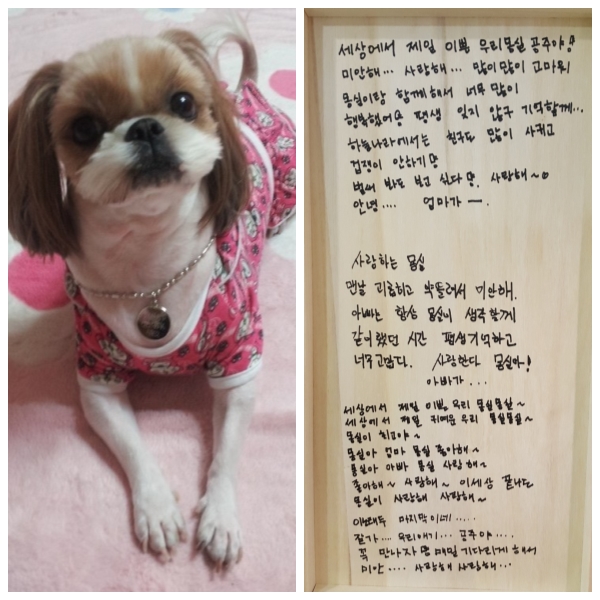 세상에서 제일 이쁜 우리몽실 공주야!
미안해... 사랑해... 많이많이 고마워
몽실이랑 함께해서 너무 많이
행복했어 평생 잊지 않구 기억할께...
하늘나라에서는 친구도 많이 사귀고
겁쟁이 안하기
벌써 보고 싶다. 사랑해~
안녕.... 엄마가ㅡ.
사랑하는 몽실
맨날 괴롭히고 미안해.
아빠는 항상 몽실이 생각할께
같이했던 시간 평생기억하고
너무고맙다. 사랑한다 몽실아!
아빠가...
세상에서 제일 이쁜 우리 몽실몽실~
세상에서 제일 귀여운 우리 몽실몽실~
몽실이 최고야~
몽실아 엄마 몽실 좋아해~
몽실아 아빠 몽실 사랑해~
좋아해~ 사랑해~ 이세상 끝나도
몽실이 사랑해 사랑해~
이노래두 마지막이네.....
잘가... 우리애기... 공주야....
꼭 만나자 매일 기다리게 해서
미안.... 사랑해 사랑해...